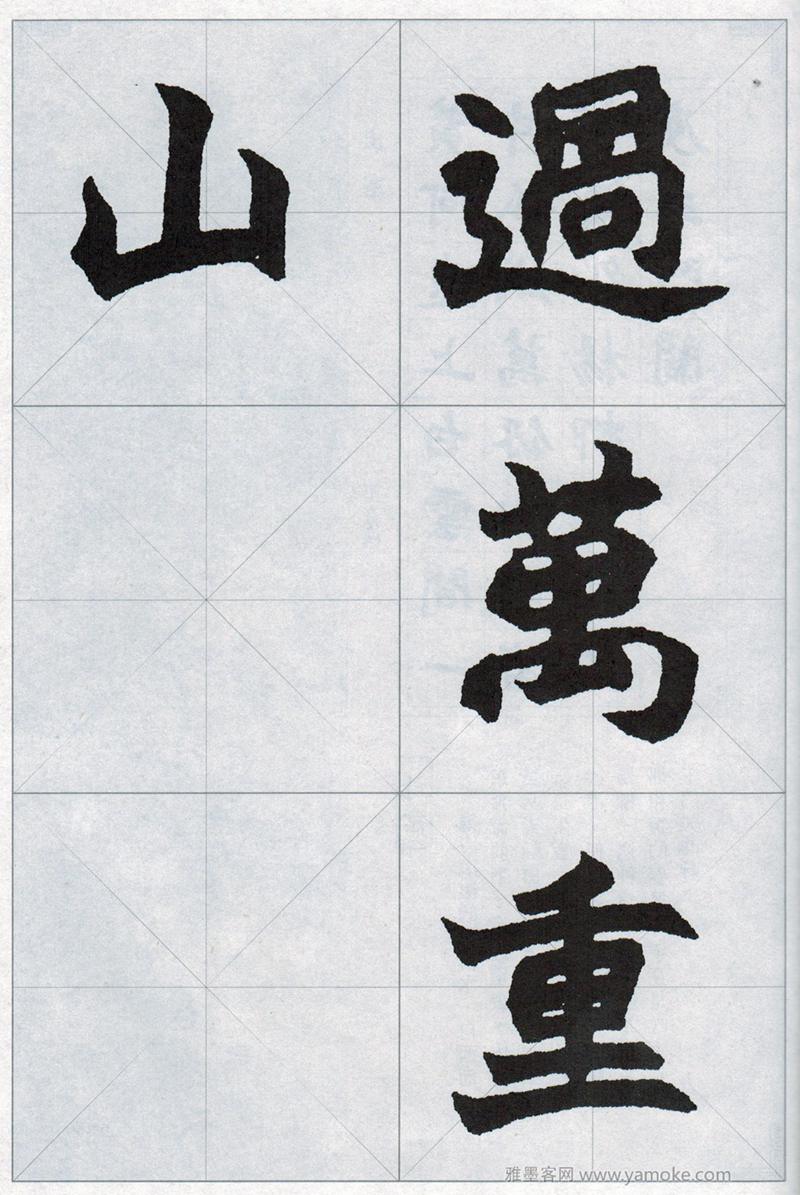 過萬重
山
雅墨客网 www.yamoke.com